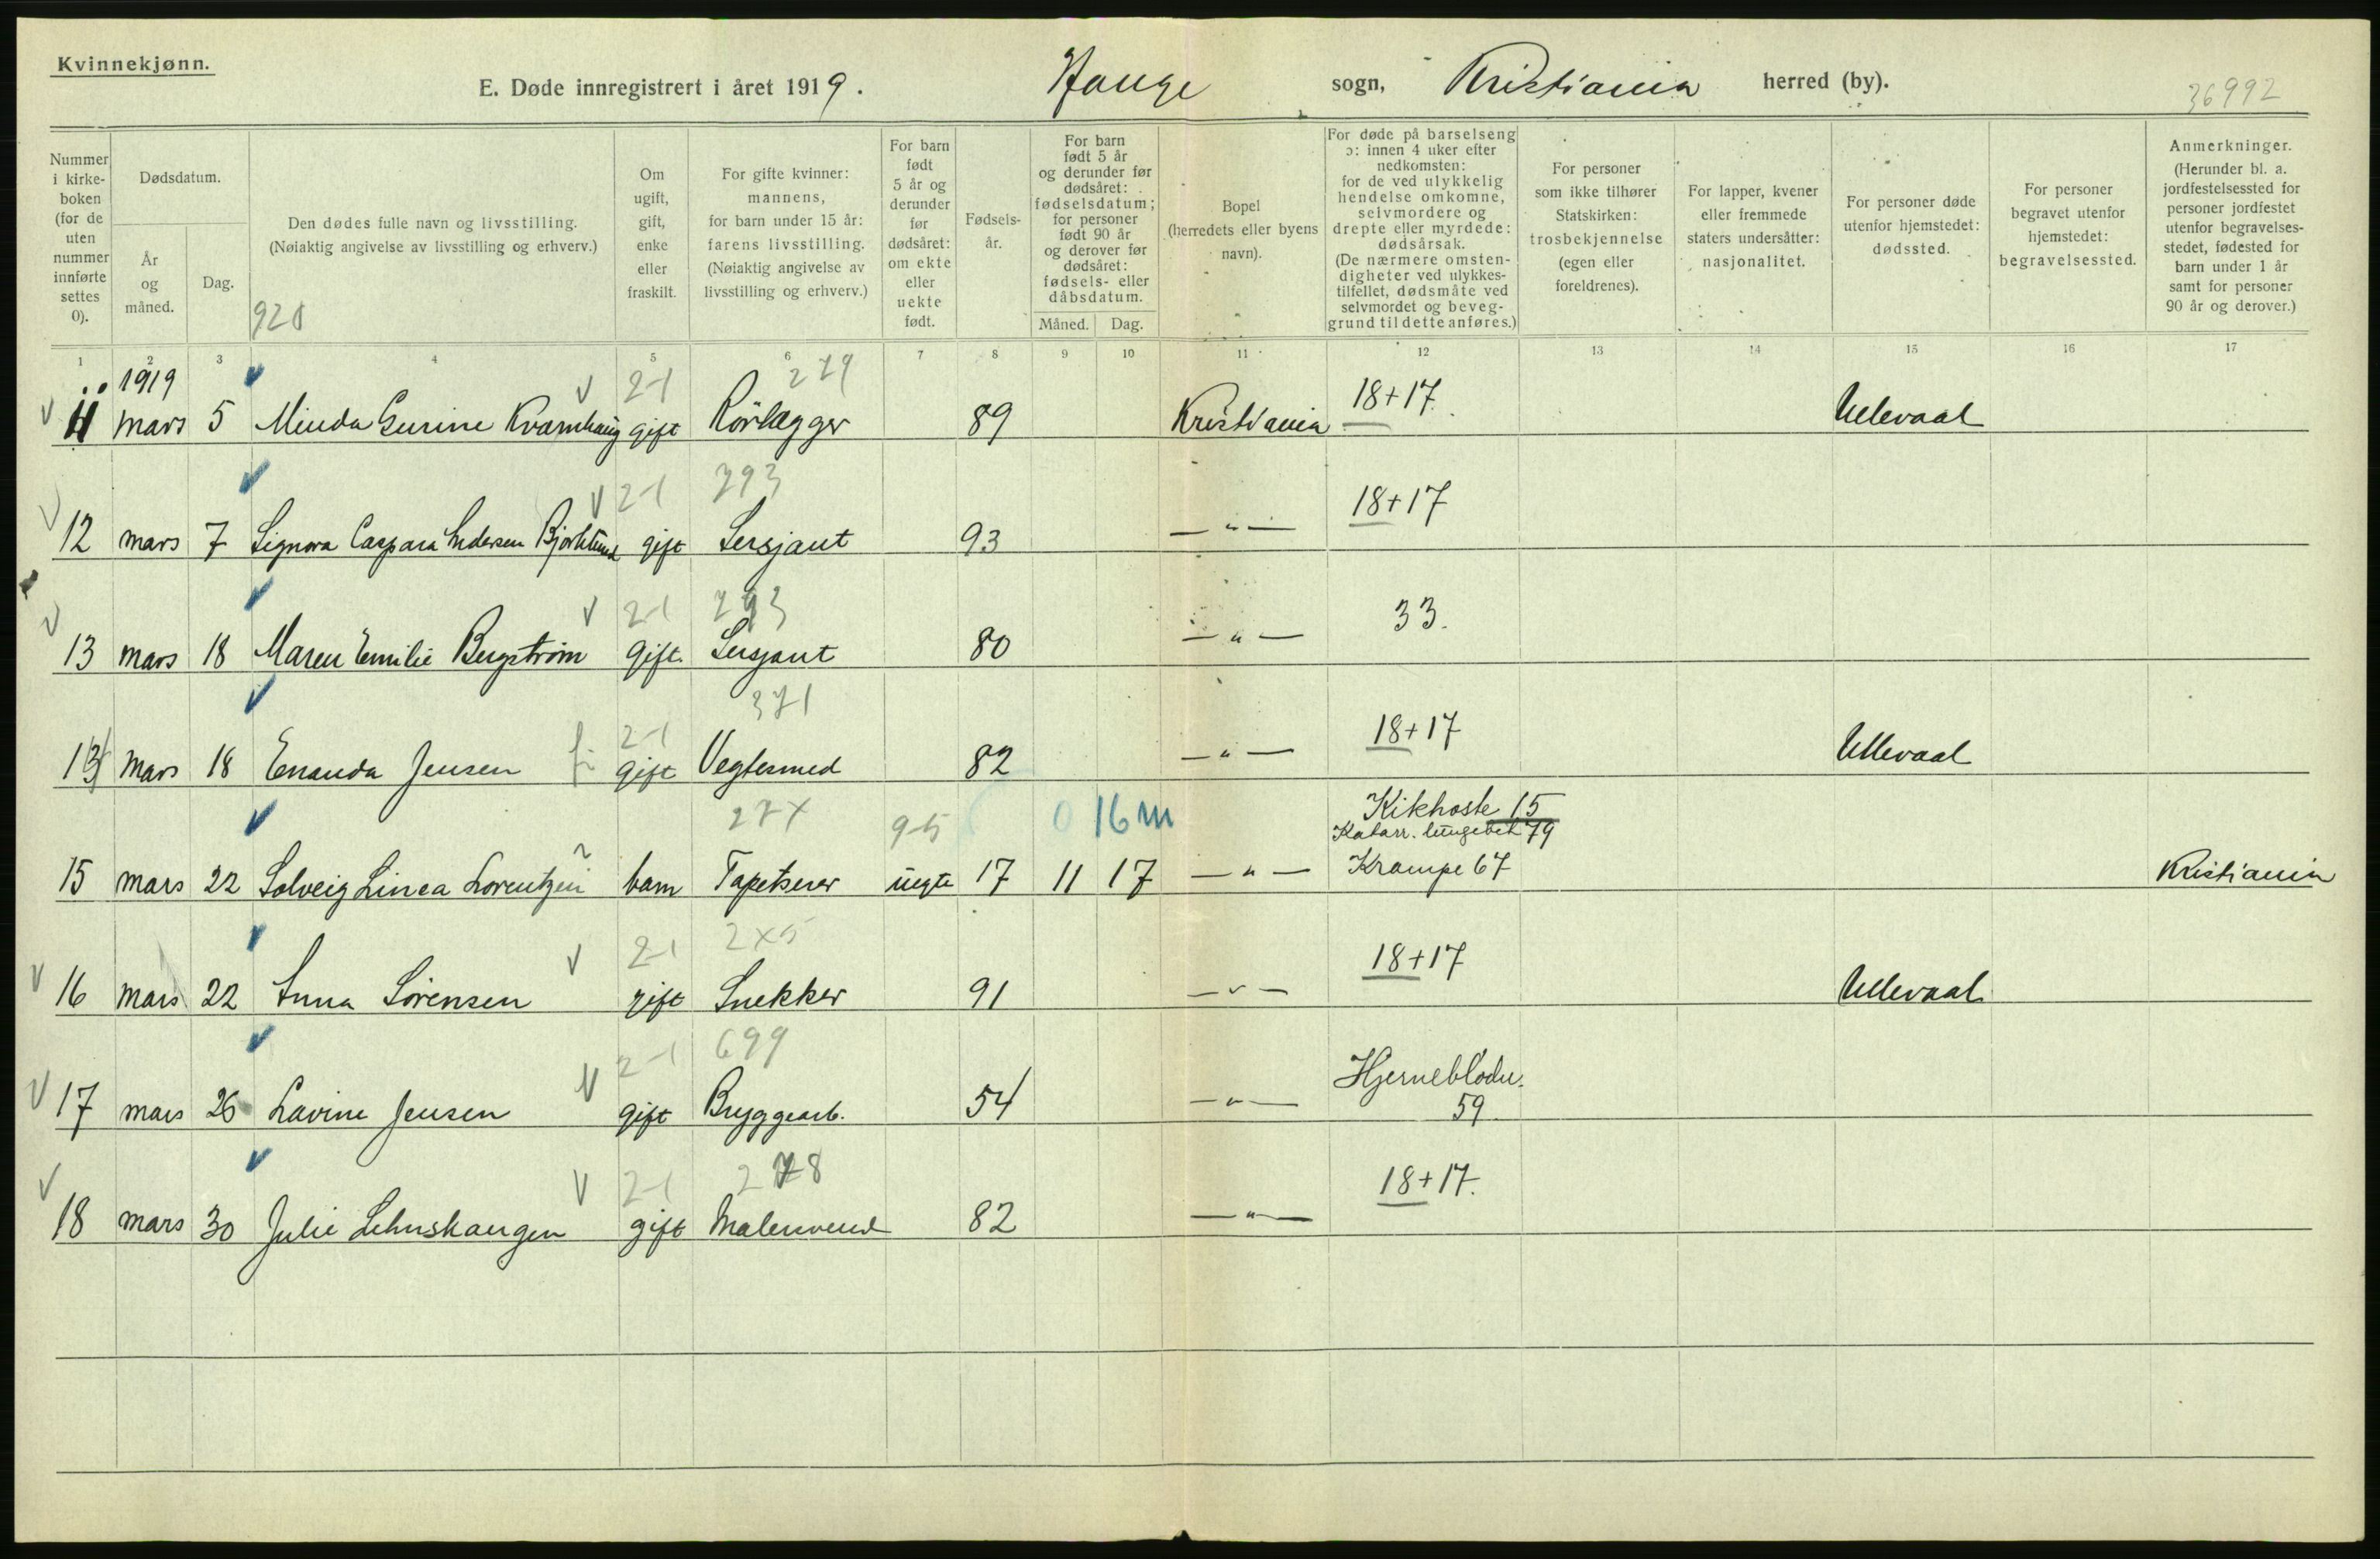 Kvinnekjønn.
E. Døde innregistrert i året 1919. Hauge sogn, Kristiania herred (by). 36992
Nummer i kirkeboken (for de uten nummer innførte settes 0).
Dødsdatum.
År og måned.
Dag.
Den dødes fulle navn og livsstilling.
(Nøiaktig angivelse av livsstilling og erhverv.)
928
Om ugift, gift, enke eller fraskilt.
For gifte kvinner: mannens, for barn under 15 år: farens livsstilling. (Nøiaktig angivelse av livsstilling og erhverv.)
For barn født 5 år og derunder før dødsåret: om ekte eller uekte født.
Fødselsår.
For barn født 5 år og derunder før dødsåret: fødselsdatum; for personer født 90 år og derover før dødsåret: fødsels- eller dåbsdatum.
Måned. Dag.
Bopel (herredets eller byens navn).
For døde på barselseng ɔ: innen 4 uker efter nedkomsten: for de ved ulykkelig hendelse omkomne, selvmordere og drepte eller myrdede: dødsårsak. (De nærmere omstendigheter ved ulykkestilfellet, dødsmåte ved selvmordet og beveggrund til dette anføres.)
For personer som ikke tilhører Statskirken: trosbekjennelse (egen eller foreldrenes).
For lapper, kvener eller fremmede staters undersåtter: nasjonalitet.
For personer døde utenfor hjemstedet: dødssted.
For personer begravet utenfor hjemstedet: begravelsessted.
Anmerkninger. (Herunder bl. a. jordfestelsessted for personer jordfestet utenfor begravelsesstedet, fødested for barn under 1 år samt for personer 90 år og derover.)
1 2 3 4 5 6 7 8 9 10 11 12 13 14 15 16 17
1919 2-1 279
11 mars 5 Minda Gurine Kvarnhaug gift Rörlægger 89 Kristiania 18+17. Ullevaal
2-1 293
12 mars 7 Signora Caspara Andersen Bjørklund gift Sersjant 93 — " — 18+17
2-1 293
13 mars 18 Maren Emilie Bergström gift. Sersjant 80 — " — 33.
2-1 371
mars 18 Enanda Jensen gift Vegtesmed 82 — " — 18+17 Ullevaal
27x 95 0 16 m Kikhoste 15
Katarr. lungebet 79
15 mars 22 Solveig Linea Lorentzen barn Tapetserer uegte 17 11 17 — " — Krampe 67 Kristiania
2-1 2x5
16 mars 22 Anna Sörensen gift Snekker 91 — " — 18+17 Ullevaal
2-1 699
17 mars 26 Lavine Jensen gift Bryggearb. 54 — " — Hjerneblödn. 59.
2-1 278
18 mars 30 Julie Lehnskaugen gift Malersvend 82 — " — 18+17.